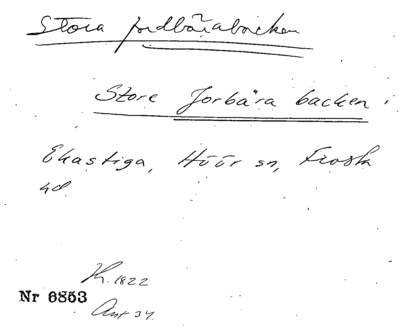 Stora jordbärabacken
Store Jorbära backen i
Ekastiga, Höör sn, Frosta
hd.
K. 1822
Nr 6853
Ant 34.